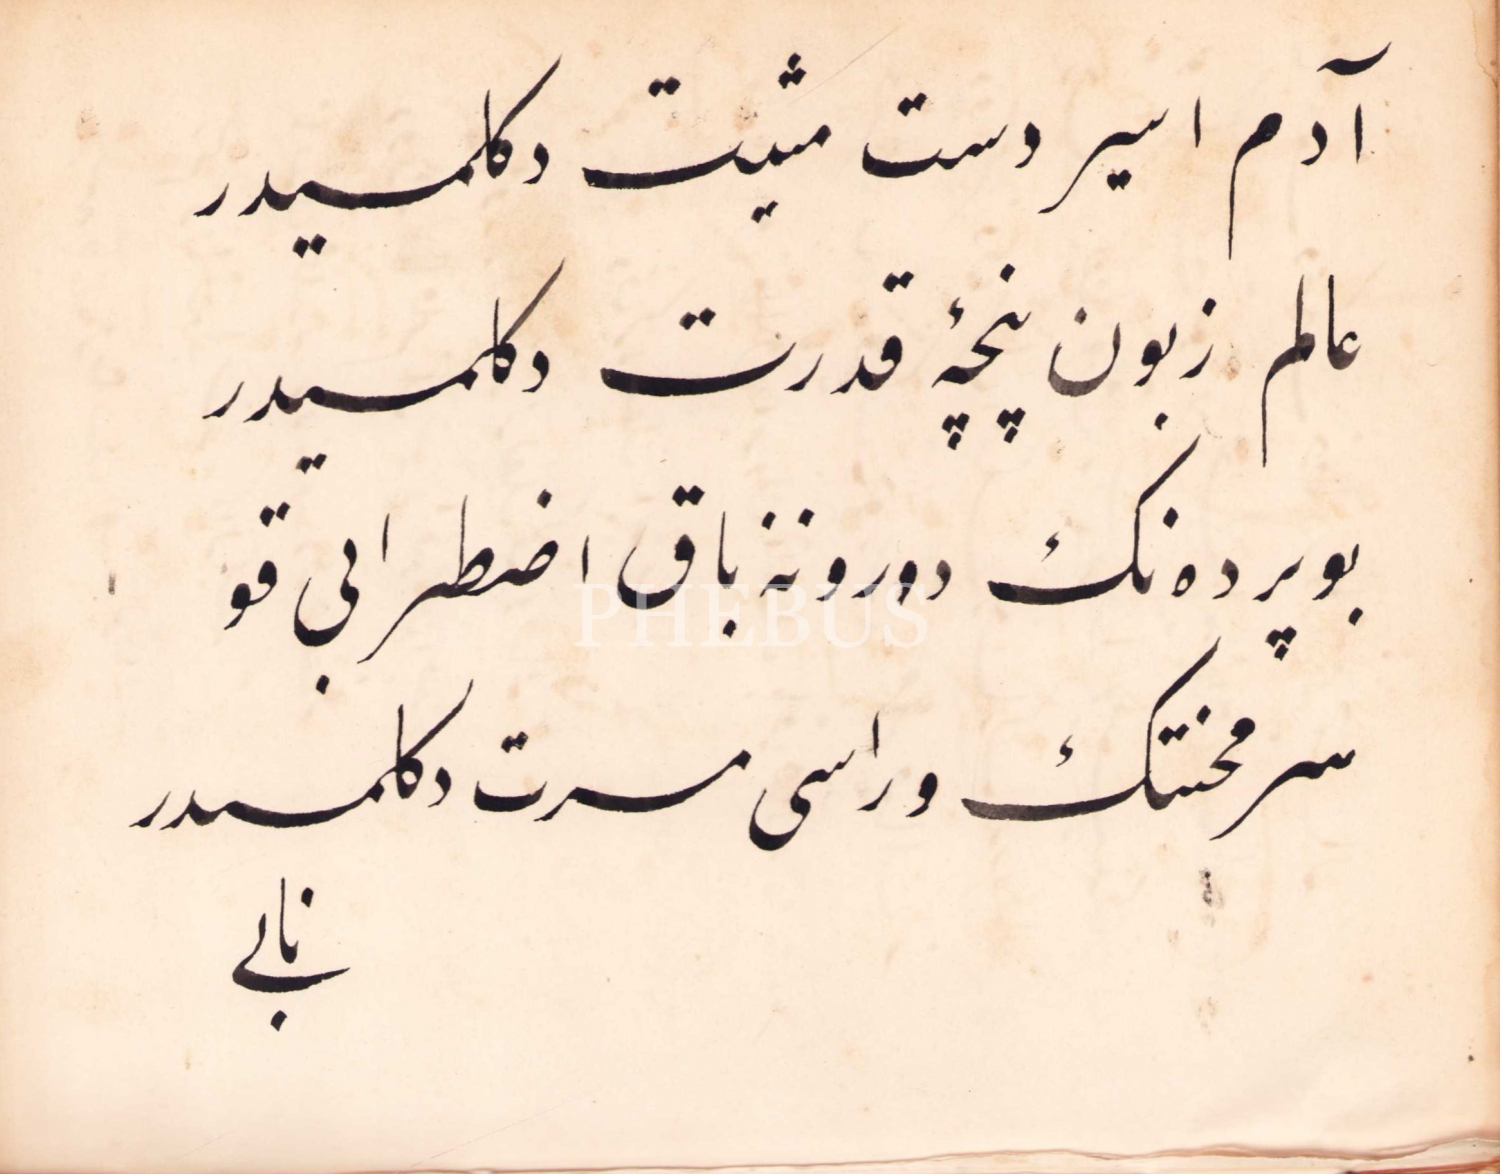 آدم اسیر دست مشیت دكلمیدر
عالم زبون پنچۀ قدرت دكلمیدر
بو پرده نك دورونه باق اضطرابی قو
سر محنتك وراسی مسرت دكلمیدر
نابی
PHEBUS